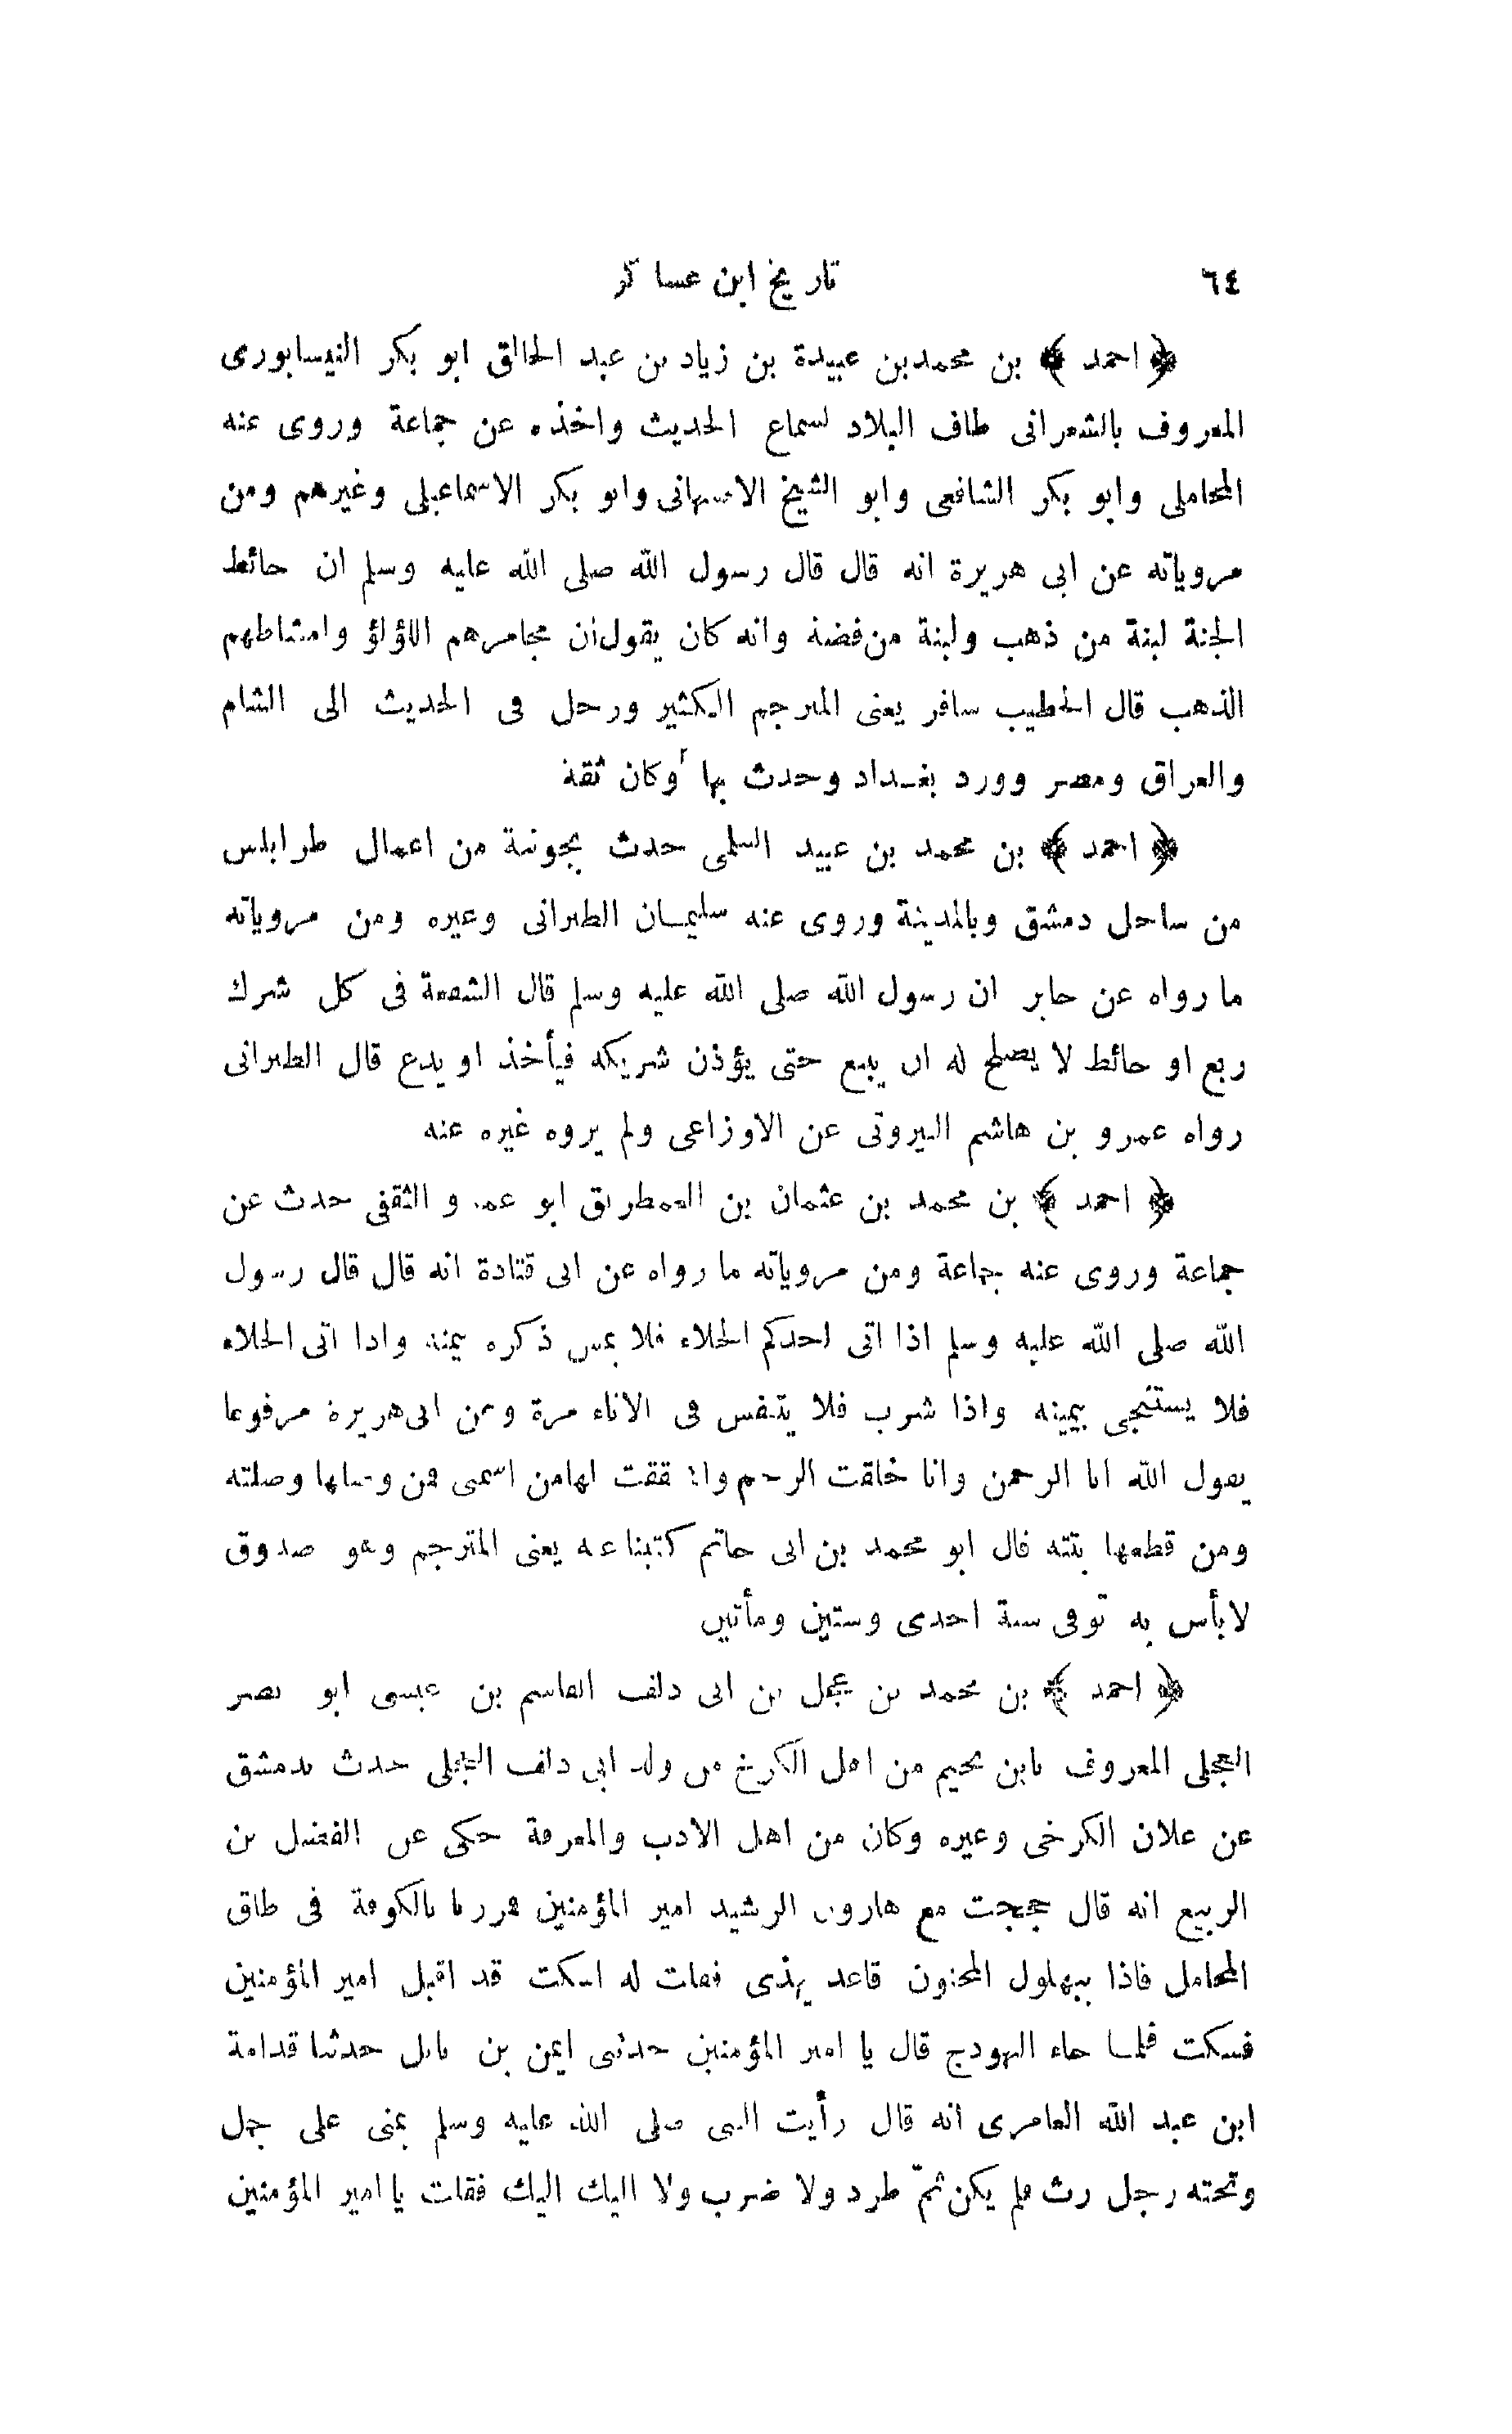 ٦٤ تاريخ ابن عساكر
﴿ احمد ﴾ بن محمد بن عبيدة بن زياد بن عبد الخالق ابو بكر النيسابورى
المعروف بالشعرانى طاف البلاد لسماع الحديث واخذه عن جماعة وروى عنه
المحاملى وابو بكر الشافعى وابو الشيخ الاصبهانى وابو بكر الاسماعيلى وغيرهم ومن
مروياته عن ابى هريرة انه قال قال رسول الله صلى الله عليه وسلم ان حائط
الجنة لبنة من ذهب ولبنة من فضة وانه كان يقول ان مجامرهم اللؤلؤ وامشاطهم
الذهب قال الخطيب سافر يعنى المترجم الكثير ورحل فى الحديث الى الشام
والعراق ومصر وورد بغداد وحدث بها وكان ثقة
﴿ احمد ﴾ بن محمد بن عبيد السلمى حدث بجونية من اعمال طرابلس
من ساحل دمشق وبالمدينة وروى عنه سليمان الطبرانى وغيره ومن مروياته
ما رواه عن جابر ان رسول الله صلى الله عليه وسلم قال الشفعة فى كل شرك
ربع او حائط لا يصلح له ان يبيع حتى يؤذن شريكه فيأخذ او يدع قال الطبرانى
رواه عمرو بن هاشم البيروتى عن الاوزاعى ولم يروه غيره عنه
﴿ احمد ﴾ بن محمد بن عثمان بن ابو عمرو الثقفى حدث عن
جماعة وروى عنه جماعة ومن مروياته ما رواه عن ابى قتادة انه قال قال رسول
الله صلى الله عليه وسلم اذا اتى احدكم الخلاء فلا يمس ذكره بيمينه واذا اتى الخلاء
فلا يستنجى بيمينه واذا شرب فلا يتنفس فى الاناء مرة وعن ابى هريرة مرفوعا
يقول الله انا الرحمن وانا خلقت الرحم واشتققت لها من اسمى فمن وصلها وصلته
ومن قطعها بتته قال ابو محمد بن ابى حاتم كتبنا عنه يعنى المترجم وهو صدوق
لا بأس به توفى سنة احدى وستين ومأتين
﴿ احمد ﴾ بن محمد بن عجل بن ابى دلف القاسم بن عيسى ابو نصر
العجلى المعروف بابن من اهل الكرخ من ولد ابى دلف العجلى حدث بدمشق
عن علان الكرخى وغيره وكان من اهل الادب والمعرفة حكى عن الفضل بن
الربيع انه قال حججت مع هارون الرشيد امير المؤمنين فمررنا بالكوفة فى طاق
المحامل فاذا ببهلول المجنون قاعد يهذى فقلت له اسكت قد اقبل امير المؤمنين
فسكت فلما جاء الهودج قال يا امير المؤمنين حدثنى ايمن بن نابل حدثنا قدامة
ابن عبد الله العامرى انه قال رأيت النبى صلى الله عليه وسلم بمنى على جمل
وتحته رحل رث فلم يكن ثمّ طرد ولا ضرب ولا اليك اليك فقلت يا امير المؤمنين